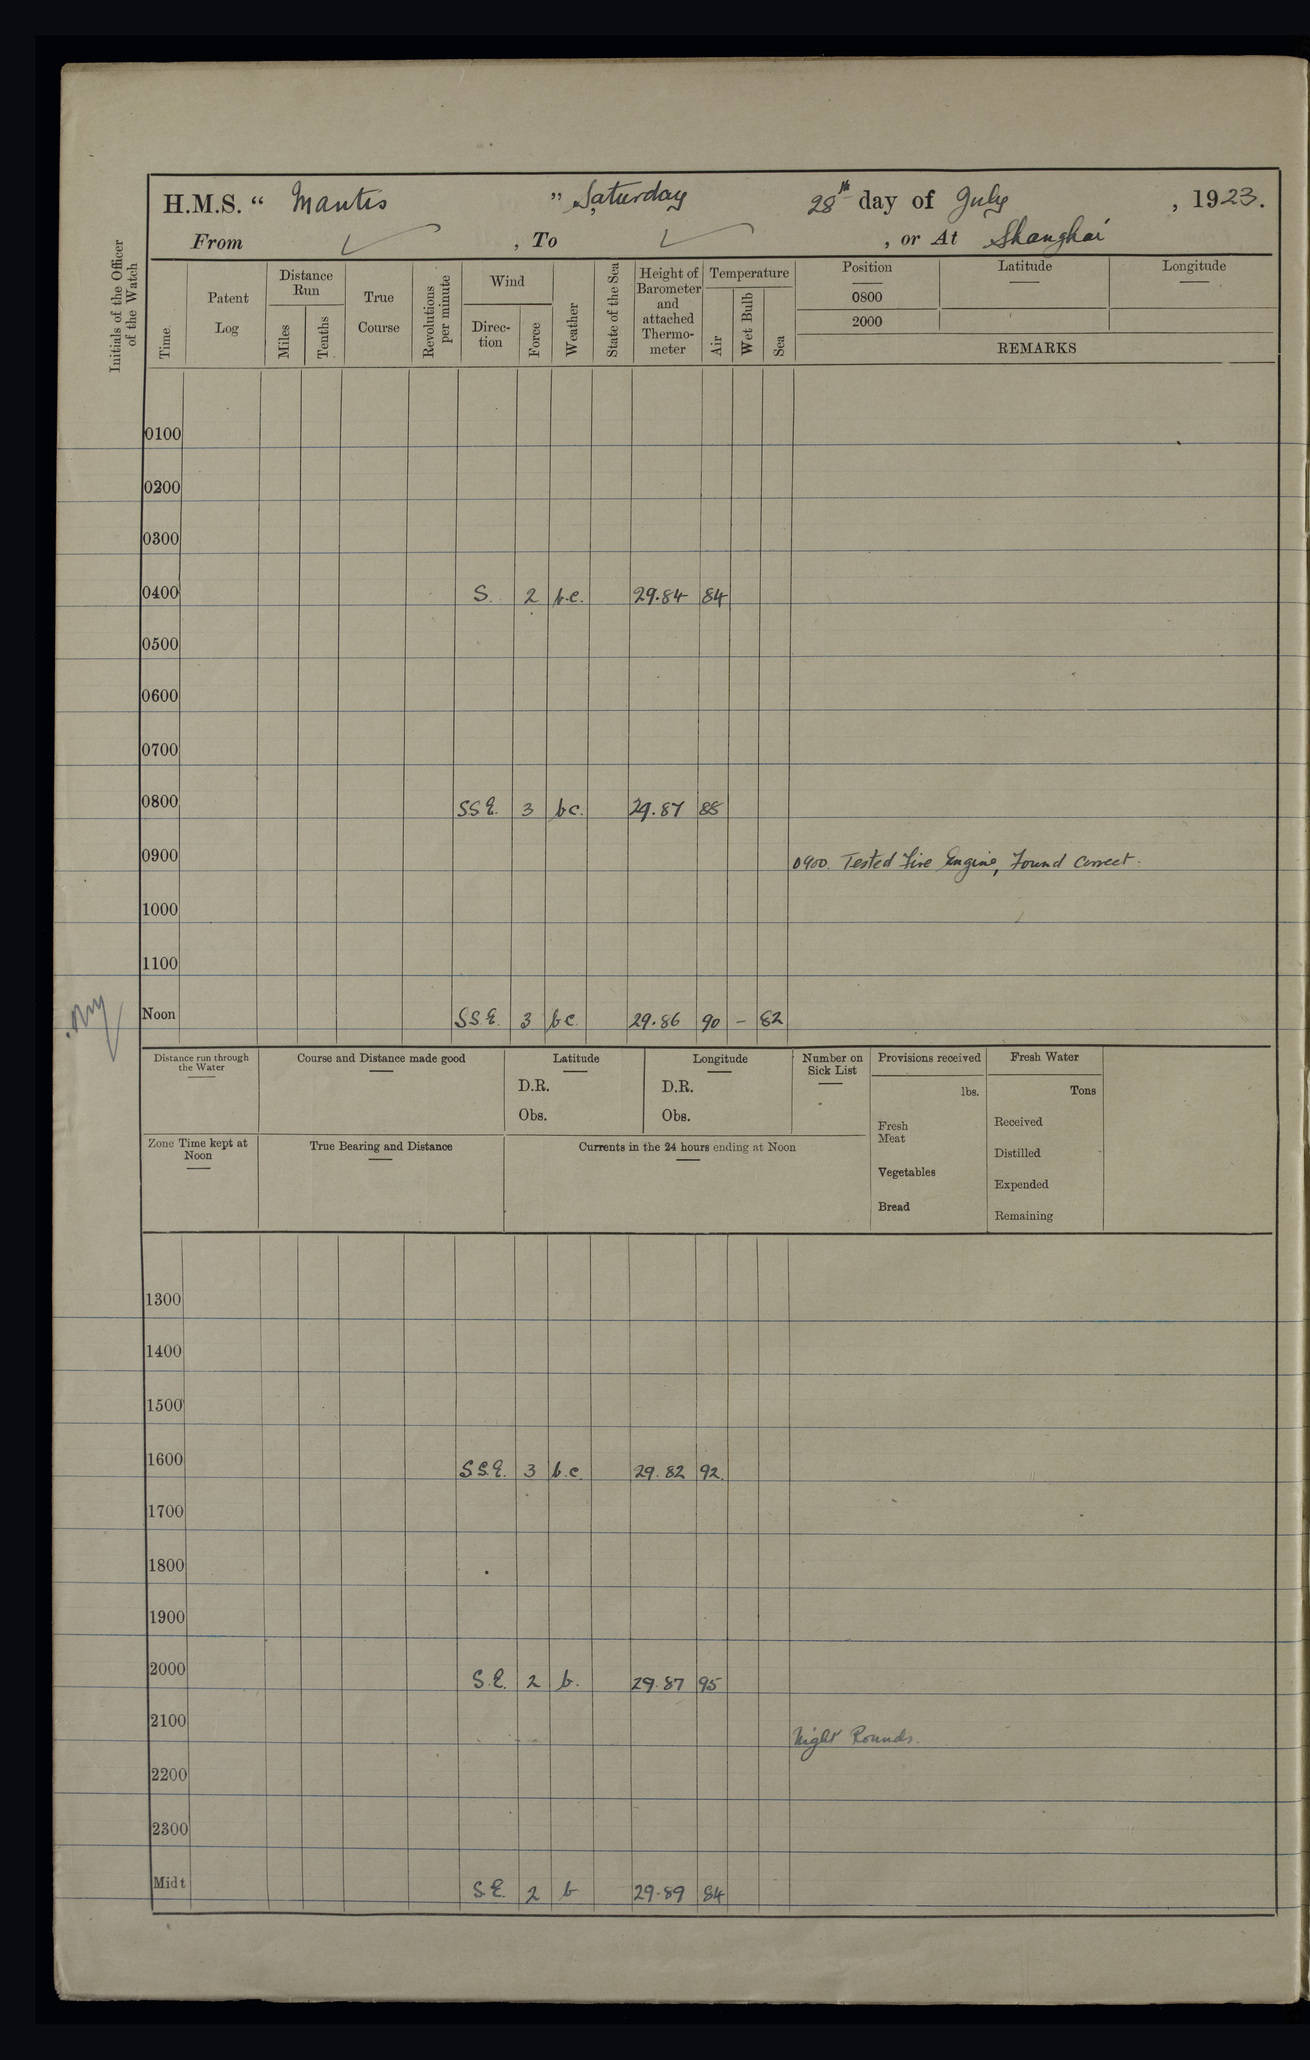 H.M.S. “ Mantis ” Saturday 28th day of July , 1923.
From ✓ , To ✓ , or At Shanghai
Initials of the Officer of the Watch
Time
Patent Log
Distance Run
Miles
Tenths
True Course
Revolutions per minute
Wind
Direc-tion
Force
Weather
State of the Sea
Height of Barometer and attached Thermo-meter
Temperature
Air
Wet Bulb
Sea
Position Latitude Longitude
0800
2000
REMARKS
0100
0200
0300
0400 S. 2 b.c. 29.84 84
0500
0600
0700
0800 SSE. 3 bc. 29.87 88
0900 0900. Tested Fire Engine, Found Correct.
1000
1100
Noon S.S.E. 3 bc. 29.86 90 – 82
Distance run through the Water
Course and Distance made good
Latitude
D.R.
Obs.
Longitude
D.R.
Obs.
Number on Sick List
Provisions received
lbs.
Fresh Meat
Vegetables
Bread
Fresh Water
Tons
Received
Distilled
Expended
Remaining
Zone Time kept at Noon
True Bearing and Distance
Currents in the 24 hours ending at Noon
1300
1400
1500
1600 S.S.E. 3 b.c. 29.82 92.
1700
1800
1900
2000 S.E. 2 b. 29.87 95
2100 Night Rounds.
2200
2300
Midt S.E. 2 b 29.89 84